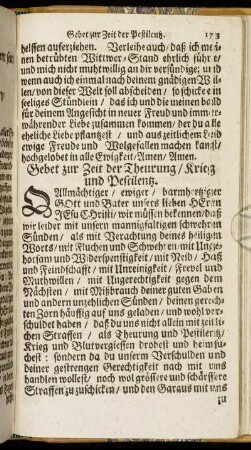 Gebet zur Zeit der Pestilentz. 173
helffen auferziehen. Verleihe auch/ daß ich meinen
betrübten Wittwer-Stand ehrlich führe/
und mich nicht muhtwillig an dir versündige; und
wenn auch ich einmal nach deinem gnädigen Willen/
von dieser Welt soll abscheiden/ so schicke ein
seeliges Stündlein/ das ich und die meinen bald
für deinem Angesicht in neuer Freud und immerwährender
Liebe zusammen kommen/ der du alle
eheliche Liebe pflantzest/ und aus zeitlichem Leid
ewige Freude und Wolgefallen machen kanst/
hochgelobet in alle Ewigkeit/ Amen/ Amen.
Gebet zur Zeit der Theurung/ Krieg
und Pestilentz.
O Allmächtiger/ ewiger/ barmhertziger
GOtt und Vater unsers lieben HErrn
JEsu Christi/ wir müssen bekennen/ daß
wir leider mit unsern mannigfaltigen schwehren
Sünden/ als mit Verachtung deines heiligen
Worts/ mit Fluchen und Schwehren/ mit Ungehorsam
und Widerspenstigkeit/ mit Neid/ Haß
und Feindschafft/ mit Unreinigkeit/ Frevel und
Muthwillen/ mit Ungerechtigkeit gegen dem
Nächsten/ mit Mißbrauch deiner guten Gaben
und andern unzehlichen Sünden/ deinen gerechten
Zorn häuffig auf uns geladen/ und wohl verschuldet
haben/ daß du uns nicht allein mit zeitlichen
Straffen/ als Theurung und Pestilentz/
Krieg und Blutvergiessen drohest und heimsuchest:
sondern da du unserm Verschulden und
deiner gestrengen Gerechtigkeit nach mit uns
handlen wollest/ noch wol grössere und schärffere
Straffen zuzuschicken/ und den Garaus mit uns
zu